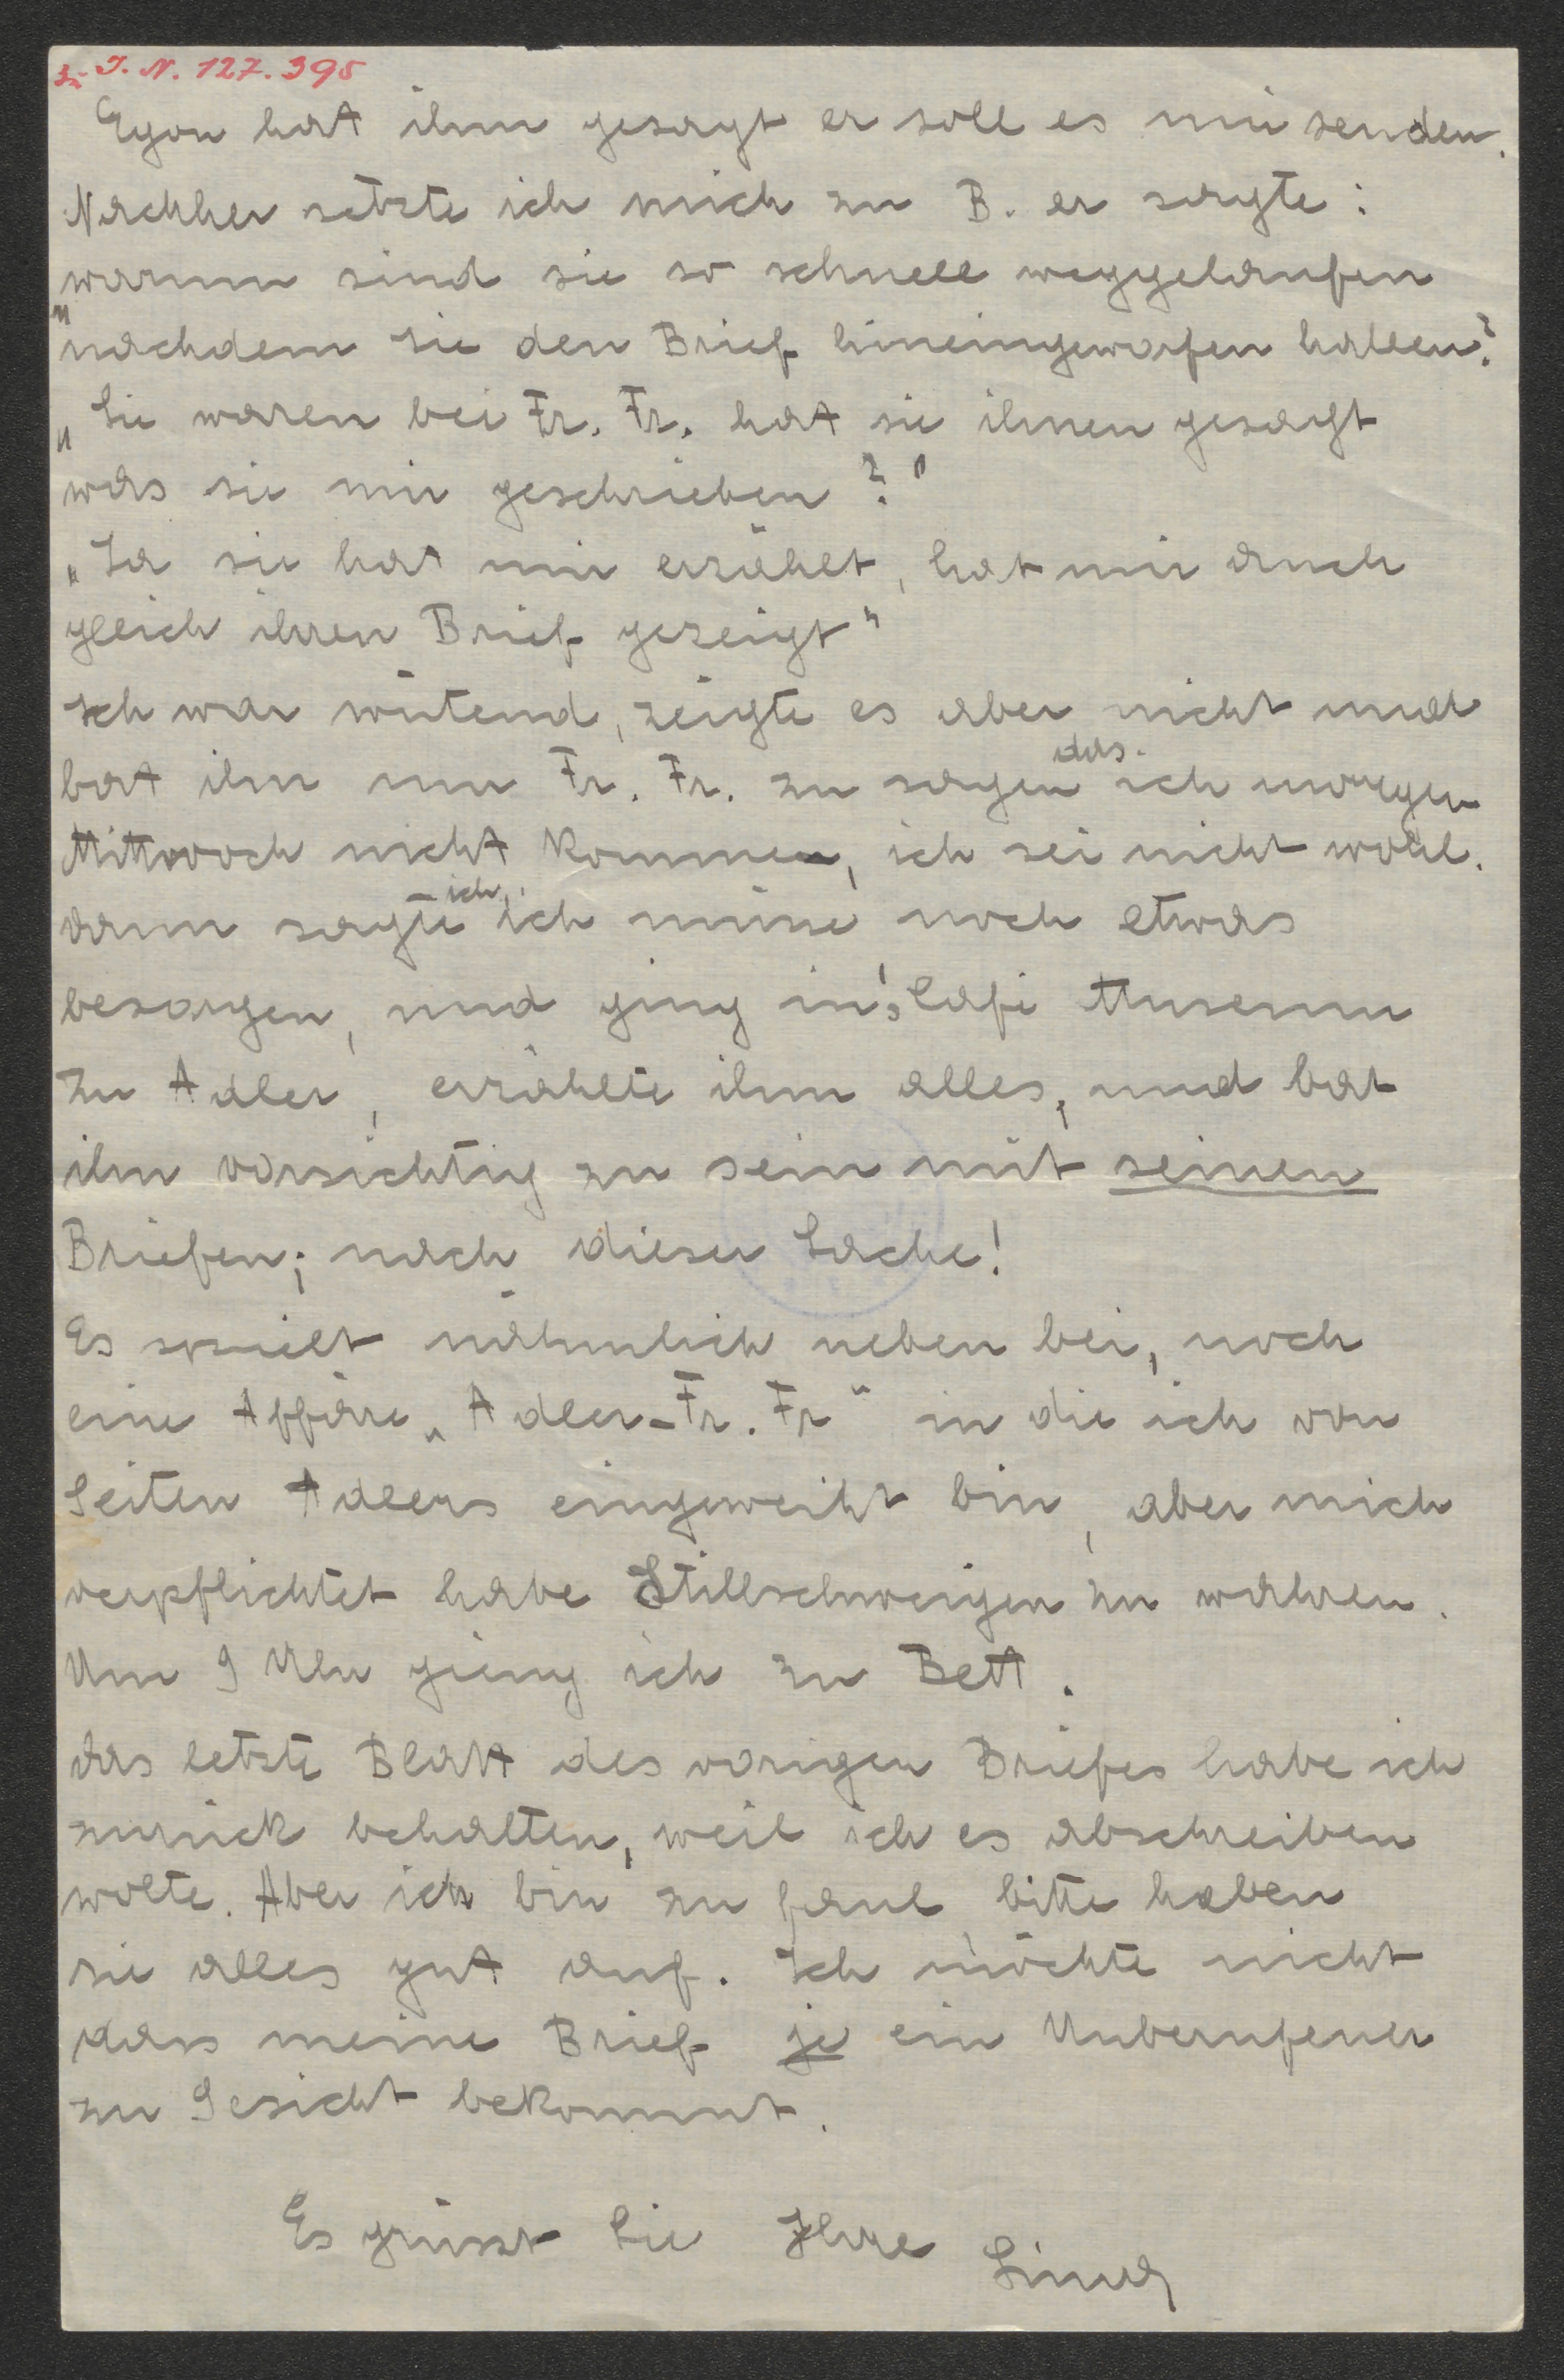 z. I. N. 127.395
Egon hat ihm gesagt er soll es mir senden.
Nachher setzte ich mich zu B. er sagte:
"warum sind sie so schnell weggelaufen
nachdem sie den Brief hineingeworfen haben?
"Sie waren bei Fr. Fr. hat sie ihnen gesagt
was sie mir geschrieben?"
"Ja sie hat mir erzählt, hat mir auch
gleich ihren Brief gezeigt"
Ich war wütend, zeigte es aber nicht und
bat ihn nur Fr. Fr. zu sagen das ich morgen
Mittwoch nicht komme, ich sei nicht wohl.
dann sagte ich ich müsse noch etwas
besorgen, und ging in's Cafe Museum
zu Adler, erzählte ihm alles, und bat
ihn vorsichtig zu sein mit seinen
Briefen; nach dieser Sache!
Es spielt nähmlich neben bei, noch
eine Affäre "Adler-Fr. Fr" in die ich von
Seiten Adlers eingeweiht bin, aber mich
verpflichtet habe Stillschweigen zu wahren.
Um 9 Uhr gieng ich zu Bett.
das letzte Blatt des vorigen Briefes habe ich
zurück behalten, weil ich es abschreiben
wolte. Aber ich bin zu faul, bitte haben
sie alles gut auf. Ich möchte nicht
dass meine Brief je ein Unberufener
zu Gesicht bekommt.
Es grüsst Sie Ihre